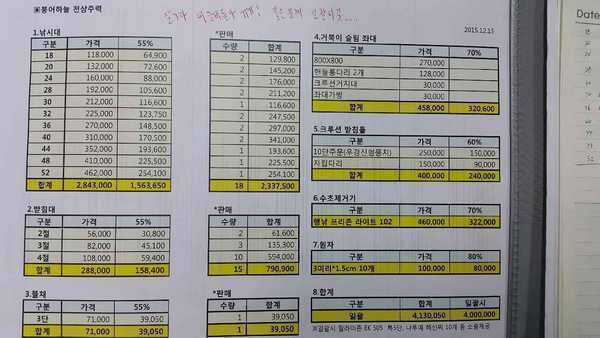 ▣붕어하늘 전상주력
2015.12.15
1.낚시대
구분 가격 55%
18 118,000 64,900
20 132,000 72,600
24 160,000 88,000
28 192,000 105,600
30 212,000 116,600
32 225,000 123,750
36 270,000 148,500
40 310,000 170,500
44 352,000 193,600
48 410,000 225,500
52 462,000 254,100
합계 2,843,000 1,563,650
*판매
수량 합계
2 129,800
2 145,200
2 176,000
2 211,200
1 116,600
2 247,500
2 297,000
2 341,000
1 193,600
1 225,500
1 254,100
18 2,337,500
2.받침대
구분 가격 55%
2절 56,000 30,800
3절 82,000 45,100
4절 108,000 59,400
합계 288,000 158,400
*판매
수량 합계
2 61,600
3 135,300
10 594,000
15 790,900
3.뜰채
구분 가격 55%
3단 71,000 39,050
합계 71,000 39,050
*판매
수량 합계
1 39,050
1 39,050
4.거북이 슬림 좌대
구분 70%
800X800 270,000
한들롱다리 2개 128,000
크루션거치대 30,000
좌대가방 30,000
합계 458,000 320,600
5.크루션 받침틀
구분 60%
10단주문(우경신형뭉치) 250,000 150,000
자립다리 150,000 90,000
합계 400,000 240,000
6.수초제거기
구분 가격 70%
행낚 프리존 라이트 102 460,000 322,000
7.원자
구분 가격 80%
3미리*1.5cm 10개 100,000 80,000
8.합계
구분 합계 일괄시
일괄 4,130,050 4,000,000